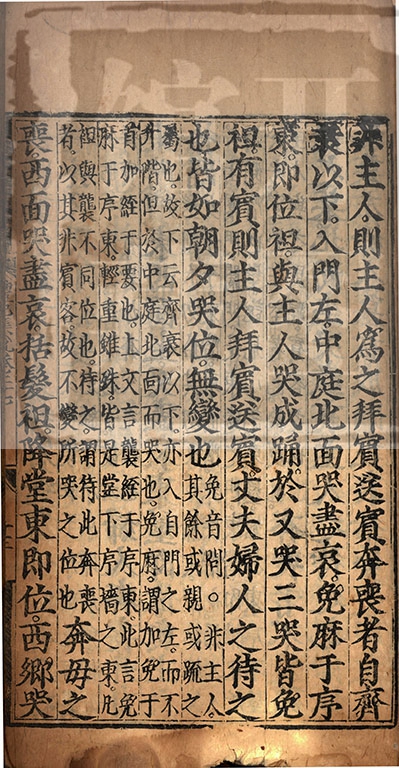 非主人則主人爲之拜賓送賓奔喪者自齊
衰以下入門左中庭北面哭盡哀免麻于序
東即位袒與主人哭成踊於又哭三哭皆免
袒有賓則主人拜賓送賓丈夫婦人之待之
也皆如朝夕哭位無變也
免音問○非主人
其餘或親或疏之
屬也故下云齊衰以下亦入自門之左而不
升階但於中庭北面而哭也免麻謂加免于
首加絰于要也上文言襲絰于序東此言免
麻于序東輕重雖殊皆是堂下序牆之東凡
袒與襲不同位也待之謂待此奔喪
者以其非賓客故不變所哭之位也
奔母之
喪西面哭盡哀括髮袒降堂東即位西鄉哭